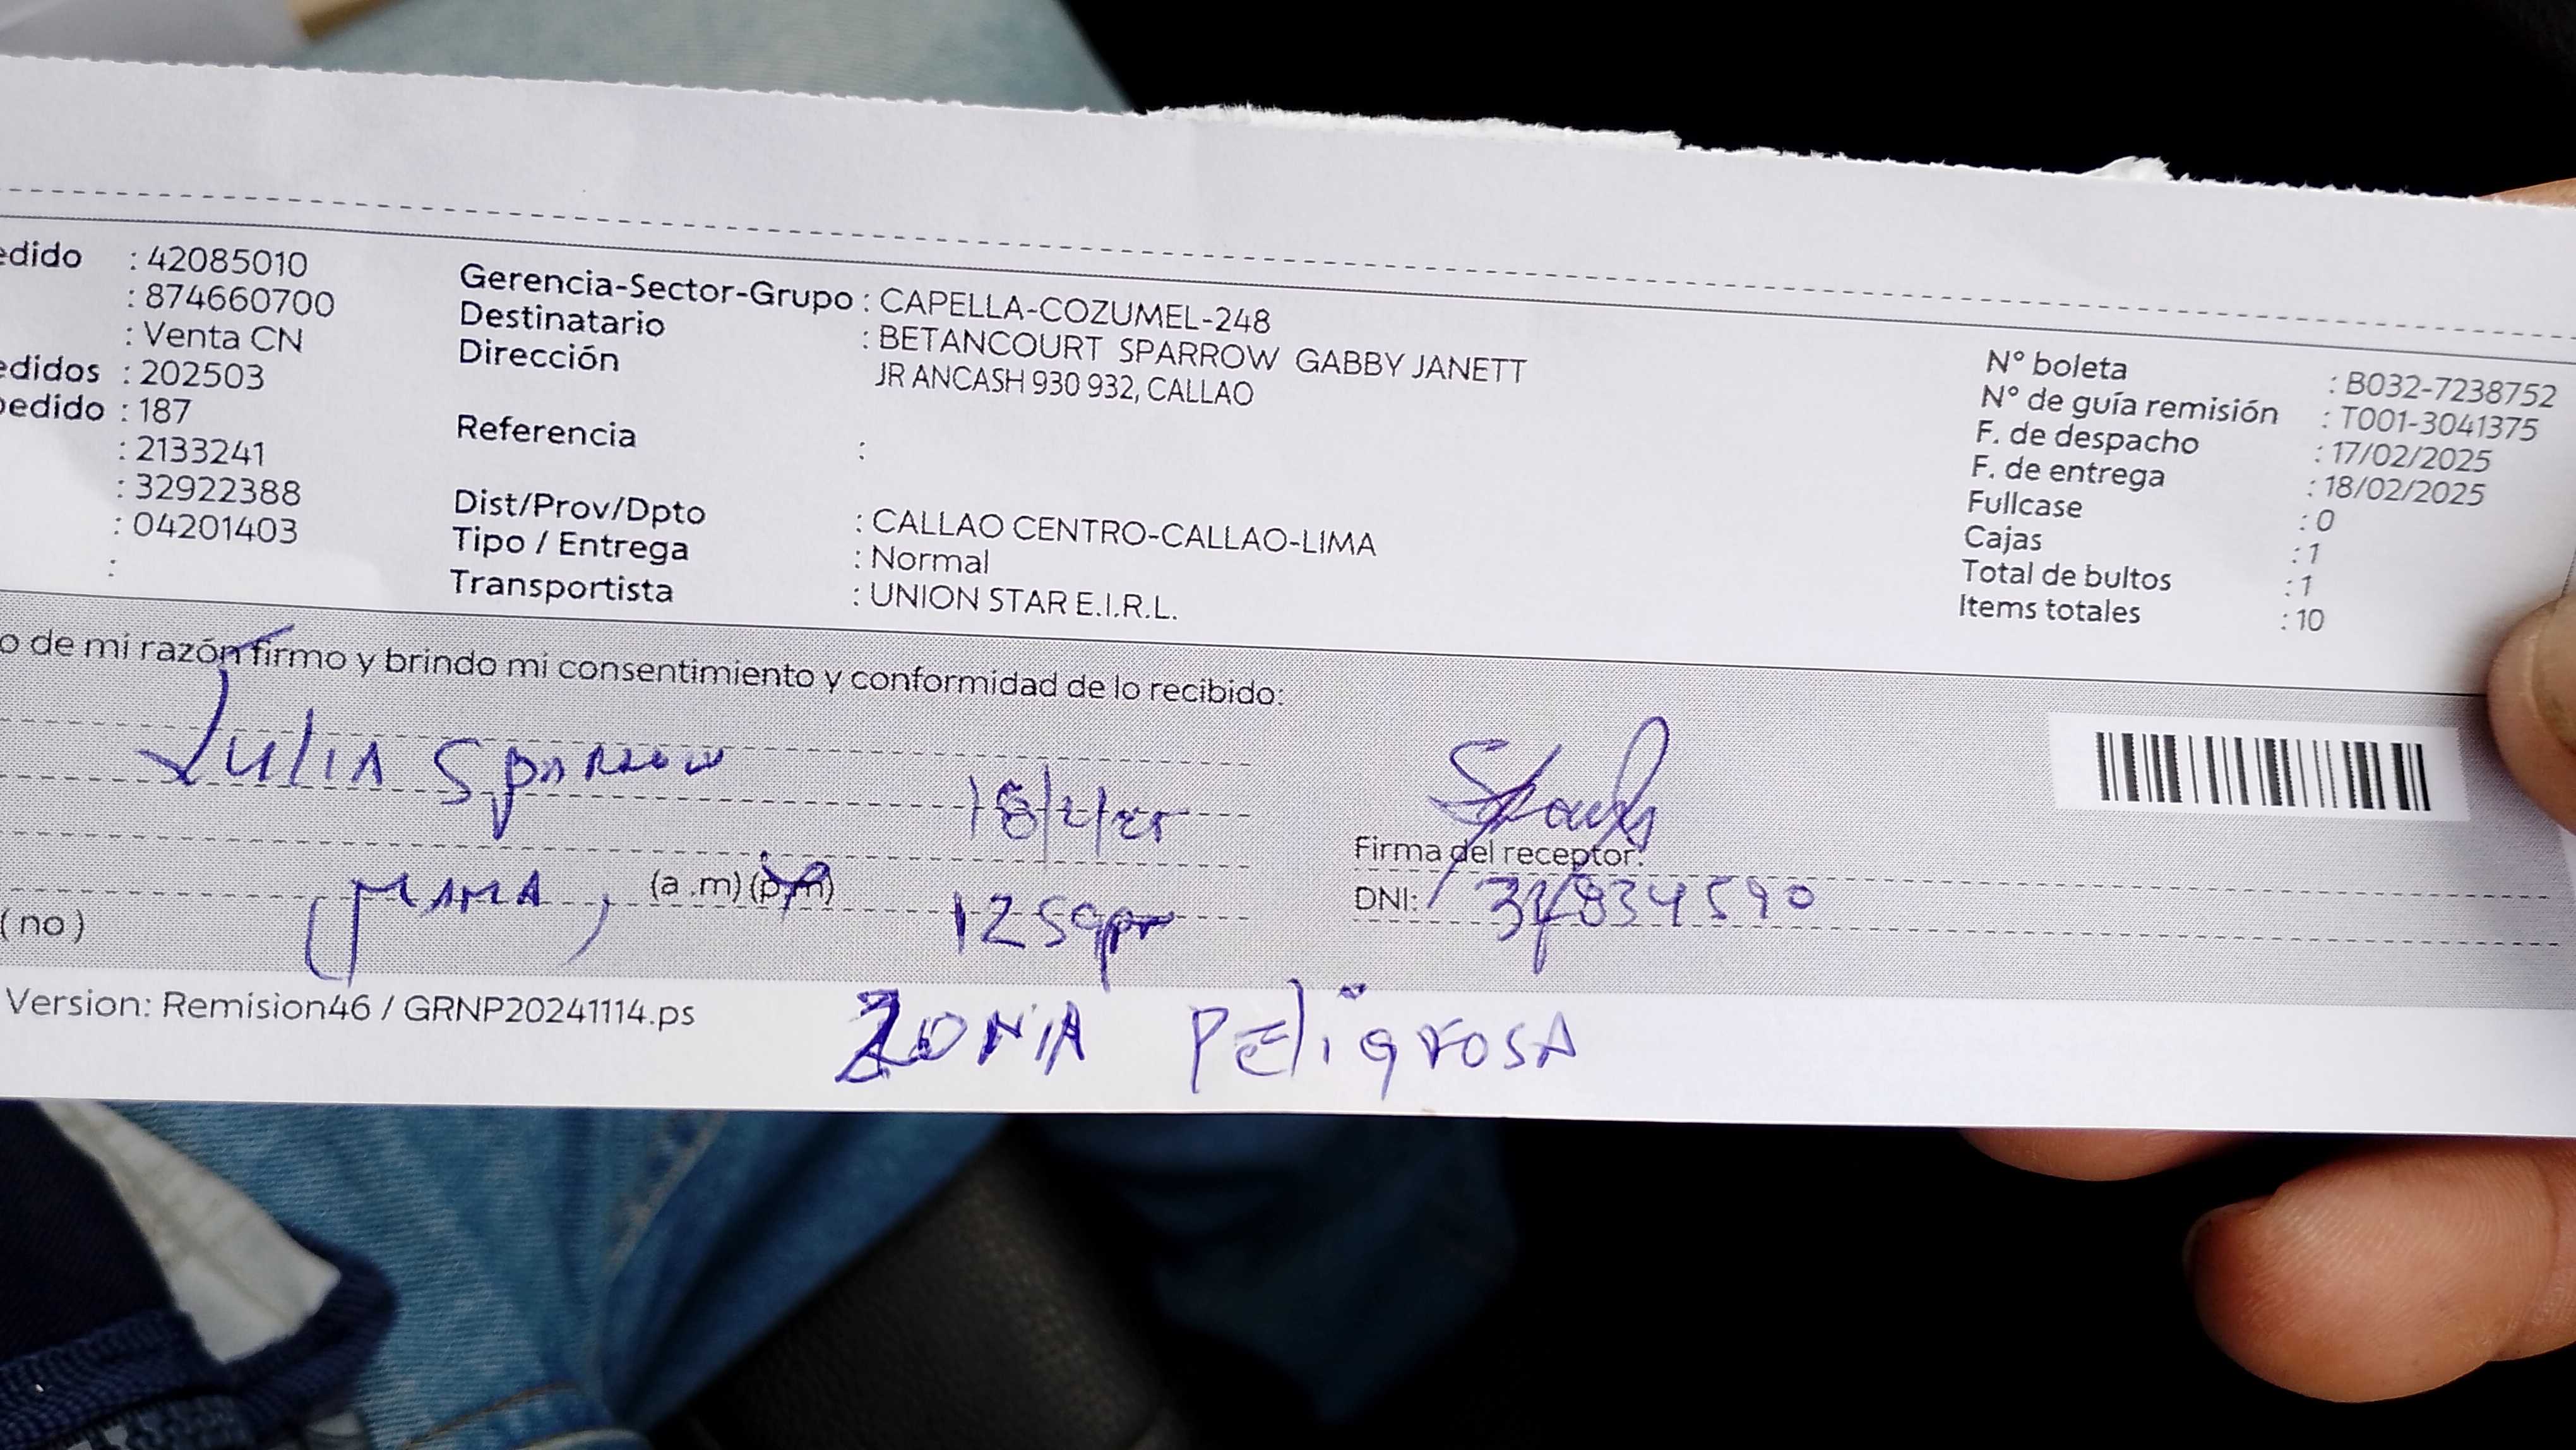 edido : 42085010
: 874660700
: Venta CN
edidos : 202503
pedido : 187
: 2133241
: 32922388
: 04201403
:
Gerencia-Sector-Grupo : CAPELLA-COZUMEL-248
Destinatario : BETANCOURT SPARROW GABBY JANETT
Dirección JR ANCASH 930 932, CALLAO
Referencia :
Dist/Prov/Dpto : CALLAO CENTRO-CALLAO-LIMA
Tipo / Entrega : Normal
Transportista : UNION STAR E.I.R.L.
N° boleta : B032-7238752
N° de guía remisión : T001-3041375
F. de despacho : 17/02/2025
F. de entrega : 18/02/2025
Fullcase : 0
Cajas : 1
Total de bultos : 1
Items totales : 10
o de mi razón firmo y brindo mi consentimiento y conformidad de lo recibido:
Julia Sparrow
18/2/25
Firma del receptor:
(MAMA) (a .m) (p.m)
1259pm
DNI:
(no)
Version: Remision46 / GRNP20241114.ps
ZONA PELIGROSA